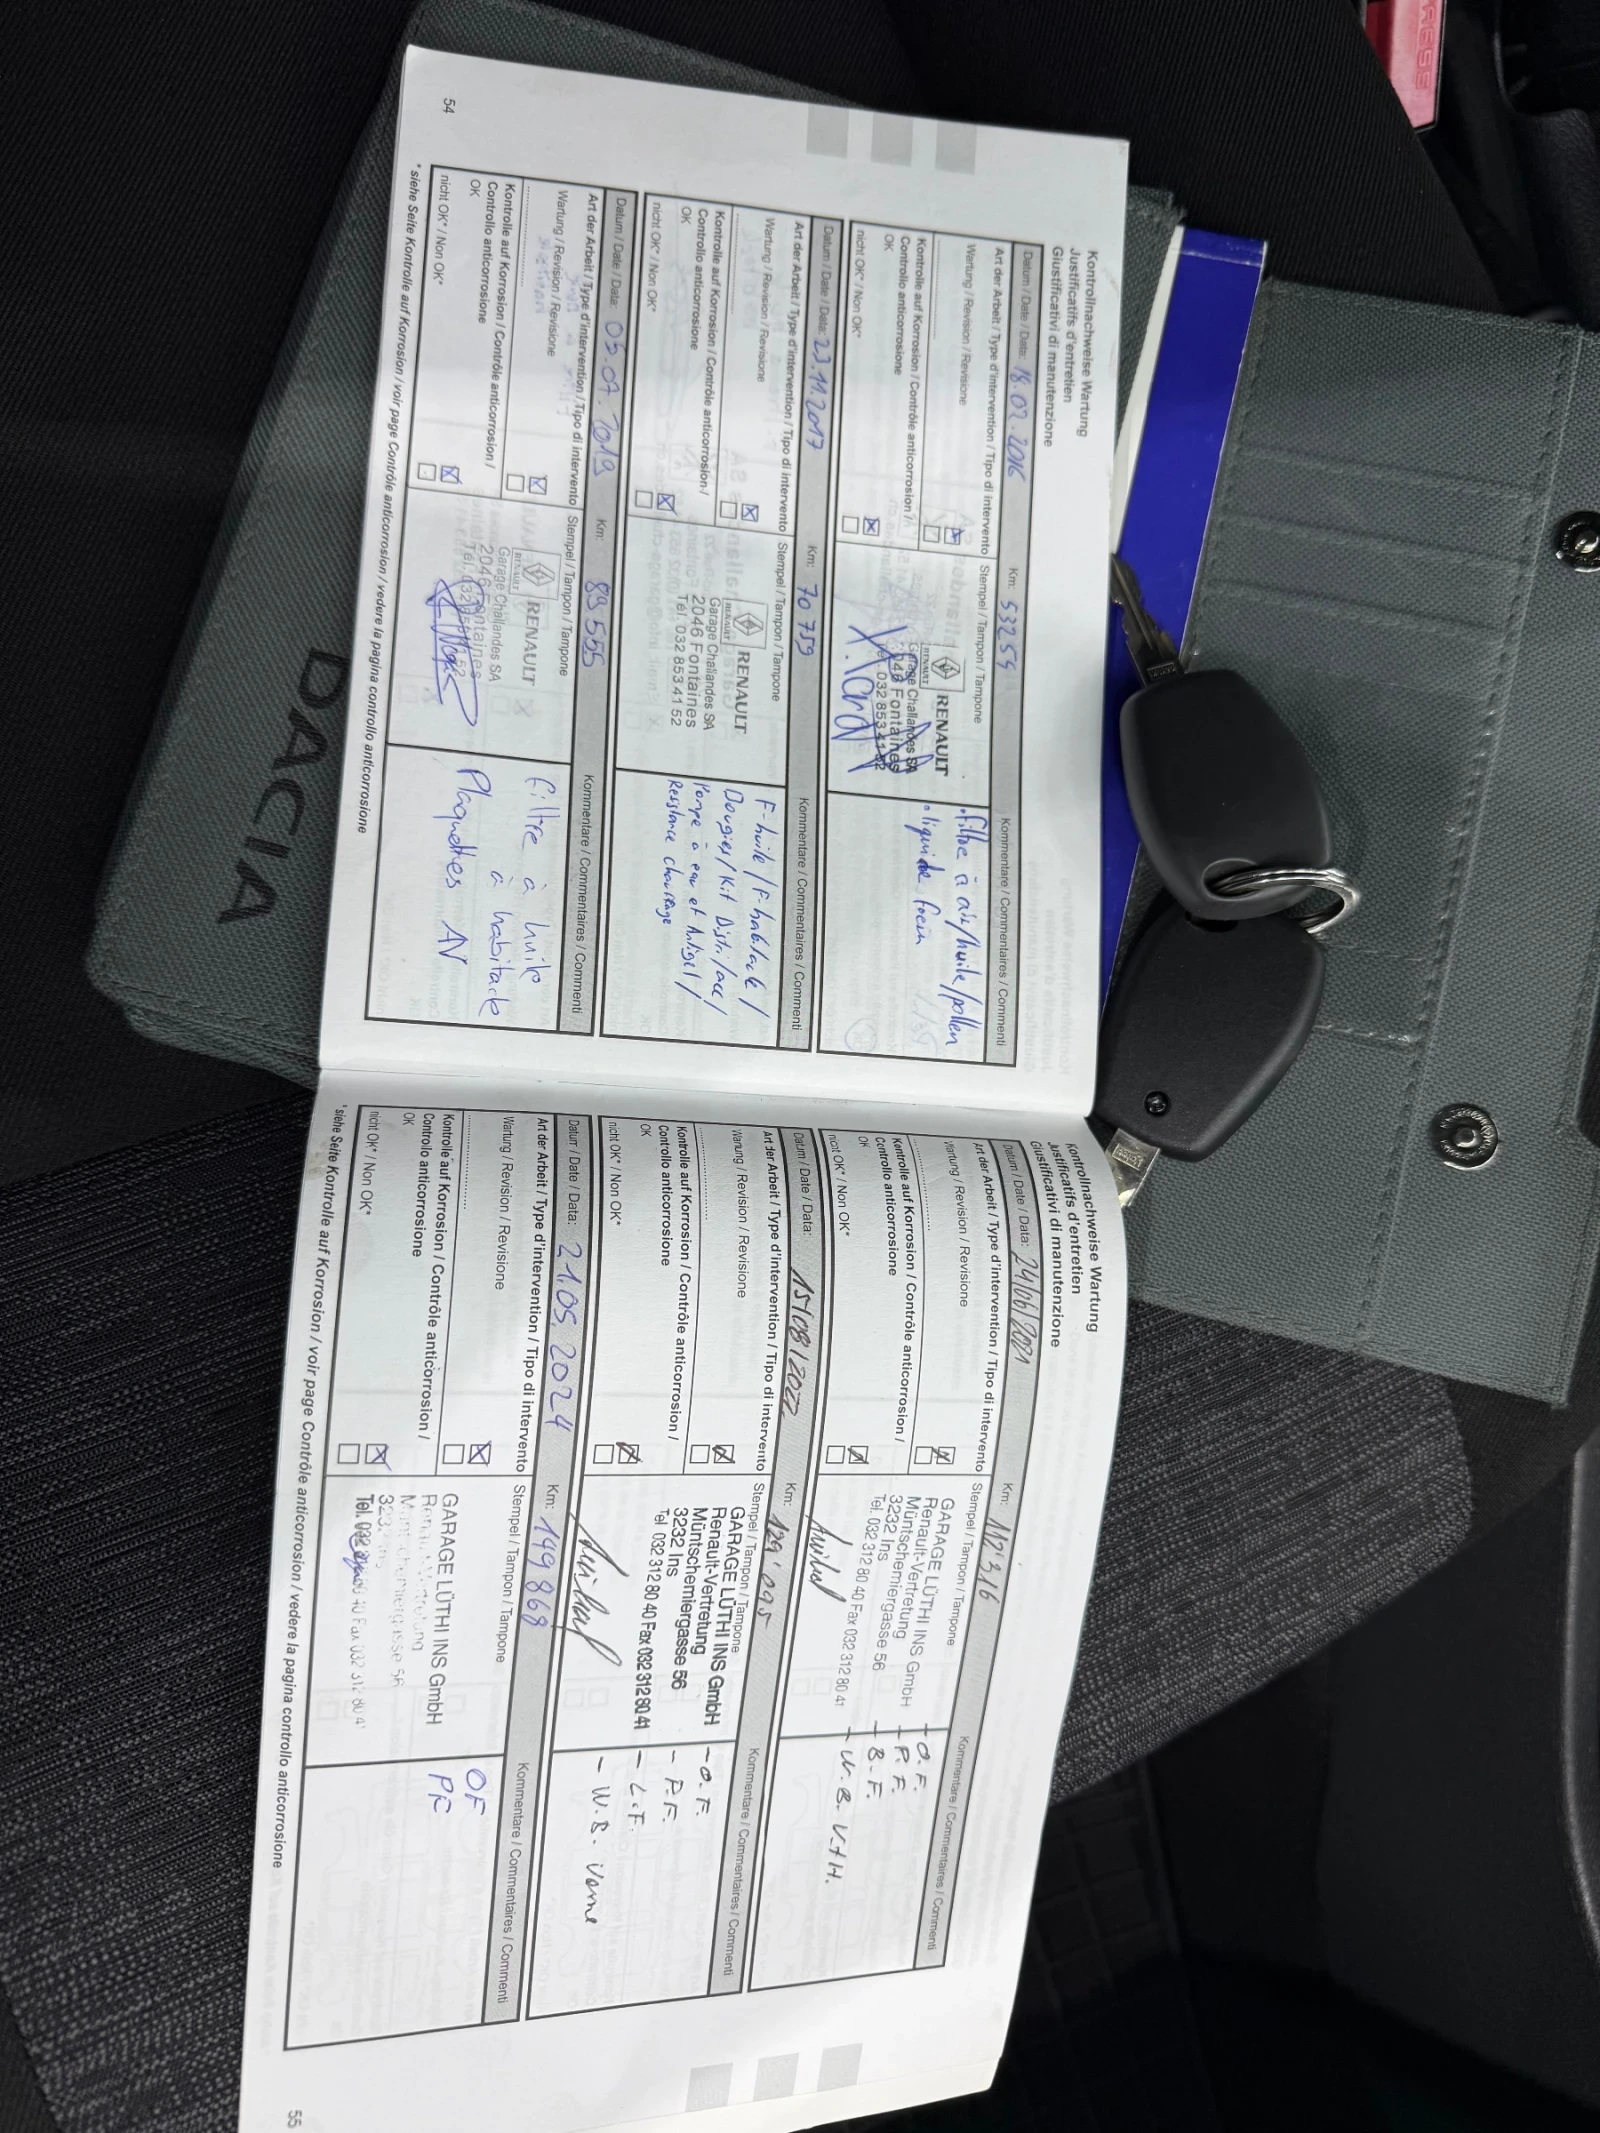 Kontrollnachweise Wartung
Justificatifs d'entretien
Giustificativi di manutenzione
Datum / Date / Data: 18.02.2016 Km: 53254
Art der Arbeit / Type d'intervention / Tipo di intervento Stempel / Tampon / Tampone Kommentare / Commentaires / Commenti
Wartung / Revision / Revisione
Kontrolle auf Korrosion / Contrôle anticorrosion /
Controllo anticorrosione
OK
nicht OK* / Non OK*
RENAULT
RENAULT
Garage Challandes SA
2046 Fontaines
Tél. 032 853 41 52
• filtre à air/huile/pollen
• liquide frein
Datum / Date / Data: 23.11.2017 Km: 70 759
Art der Arbeit / Type d'intervention / Tipo di intervento Stempel / Tampon / Tampone Kommentare / Commentaires / Commenti
Wartung / Revision / Revisione
Kontrolle auf Korrosion / Contrôle anticorrosion /
Controllo anticorrosione
OK
nicht OK* / Non OK*
RENAULT
RENAULT
Garage Challandes SA
2046 Fontaines
Tél. 032 853 41 52
F-huile / F-habitacle /
Bougies / Kit Distri / acc /
Pompe à eau et Antigel /
Resistance chauffage
Datum / Date / Data: 05.07.2019 Km: 89 555
Art der Arbeit / Type d'intervention / Tipo di intervento Stempel / Tampon / Tampone Kommentare / Commentaires / Commenti
Wartung / Revision / Revisione
Kontrolle auf Korrosion / Contrôle anticorrosion /
Controllo anticorrosione
OK
nicht OK* / Non OK*
RENAULT
RENAULT
Garage Challandes SA
2046 Fontaines
Tél. 032 853 41 52
Filtre à huile
à habitacle
Plaquettes AV
* siehe Seite Kontrolle auf Korrosion / voir page Contrôle anticorrosion / vedere la pagina controllo anticorrosione
54
Kontrollnachweise Wartung
Justificatifs d'entretien
Giustificativi di manutenzione
Datum / Date / Data: 24/06/2021 Km: 112'316
Art der Arbeit / Type d'intervention / Tipo di intervento Stempel / Tampon / Tampone Kommentare / Commentaires / Commenti
Wartung / Revision / Revisione
Kontrolle auf Korrosion / Contrôle anticorrosion /
Controllo anticorrosione
OK
nicht OK* / Non OK*
GARAGE LÜTHI INS GmbH
Renault-Vertretung
Müntschemiergasse 56
3232 Ins
Tel. 032 312 80 40 Fax 032 312 80 41
- O.F.
- P.F.
- B.F.
- W.B. V+H.
Datum / Date / Data: 15/08/2022 Km: 129'095
Art der Arbeit / Type d'intervention / Tipo di intervento Stempel / Tampon / Tampone Kommentare / Commentaires / Commenti
Wartung / Revision / Revisione
Kontrolle auf Korrosion / Contrôle anticorrosion /
Controllo anticorrosione
OK
nicht OK* / Non OK*
GARAGE LÜTHI INS GmbH
Renault-Vertretung
Müntschemiergasse 56
3232 Ins
Tel. 032 312 80 40 Fax 032 312 80 41
- O.F.
- P.F.
- L.F.
- W.B. Vorne
Datum / Date / Data: 21.05.2024 Km: 149 868
Art der Arbeit / Type d'intervention / Tipo di intervento Stempel / Tampon / Tampone Kommentare / Commentaires / Commenti
Wartung / Revision / Revisione
Kontrolle auf Korrosion / Contrôle anticorrosion /
Controllo anticorrosione
OK
nicht OK* / Non OK*
GARAGE LÜTHI INS GmbH
Renault-Vertretung
Müntschemiergasse 56
3232 Ins
Tel. 032 312 80 40 Fax 032 312 80 41
OF
PF
* siehe Seite Kontrolle auf Korrosion / voir page Contrôle anticorrosion / vedere la pagina controllo anticorrosione
55
DACIA